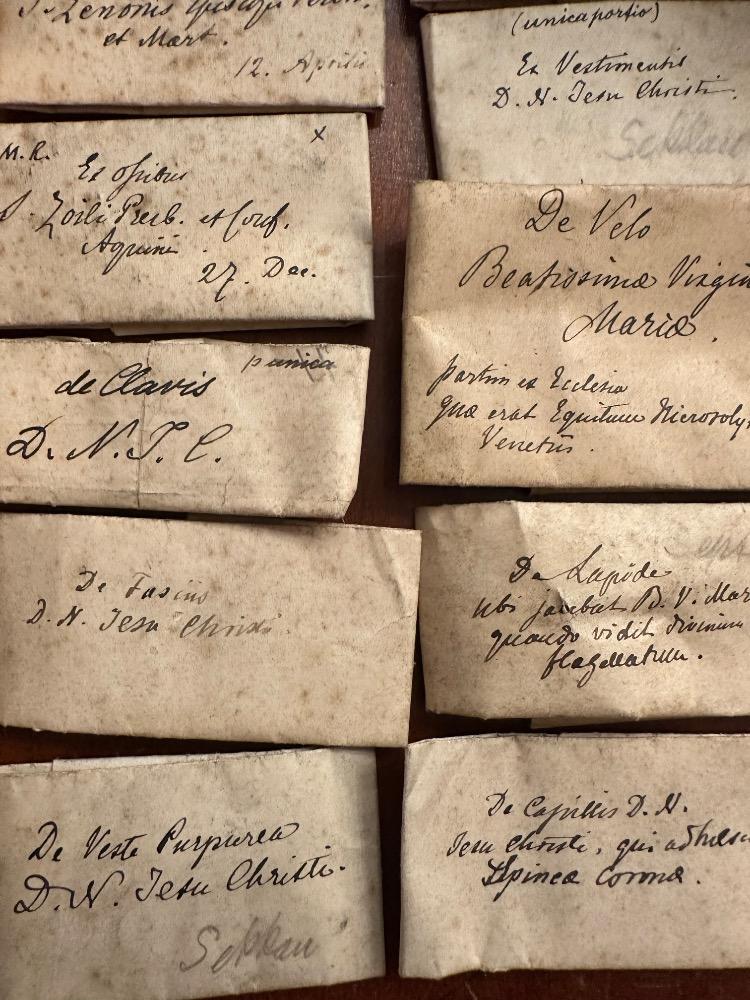 S. Zenonis Episcopi Veron.
et Mart.
12. Aprilis
M.R.
x
Ex ossibus
S. Zoili Presb. et Conf.
Aquini.
27. Dec.
p unica
de Clavis
D. N. J. C.
De Fasciis
D. N. Jesu Christi
De Veste Purpurea
D. N. Jesu Christi.
(unica portio)
Ex Vestimentis
D. N. Jesu Christi.
De Velo
Beatissimæ Virgin
Mariæ.
partim ex Ecclesia
quæ erat Equitum Hierosoly
Venetiis.
De Lapide
ubi jacebat B. V. Mar
quando vidit divinum
flagellatum.
De Capillis D. N.
Jesu Christi, qui adhæs
Spineæ Coronæ.